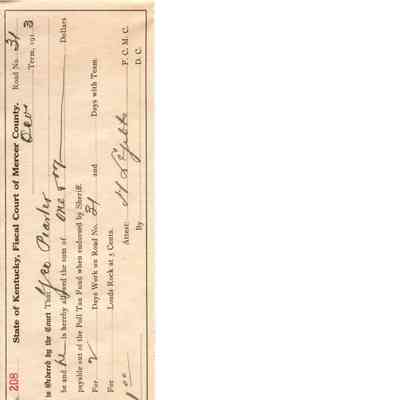 No. 208 State of Kentucky, Fiscal Court of Mercer County. Road No. 31
Dec Term, 191 3
is Ordered by the Court That Geo
be and he is hereby allowed the sum of one & no Dollars
payable out of the Poll Tax Fund when endorsed by Sheriff.
For 2 Days Work on Road No. 31 and Days with Team
For Loads Rock at 5 Cents.
Attest: F. C. M. C.
By D. C.